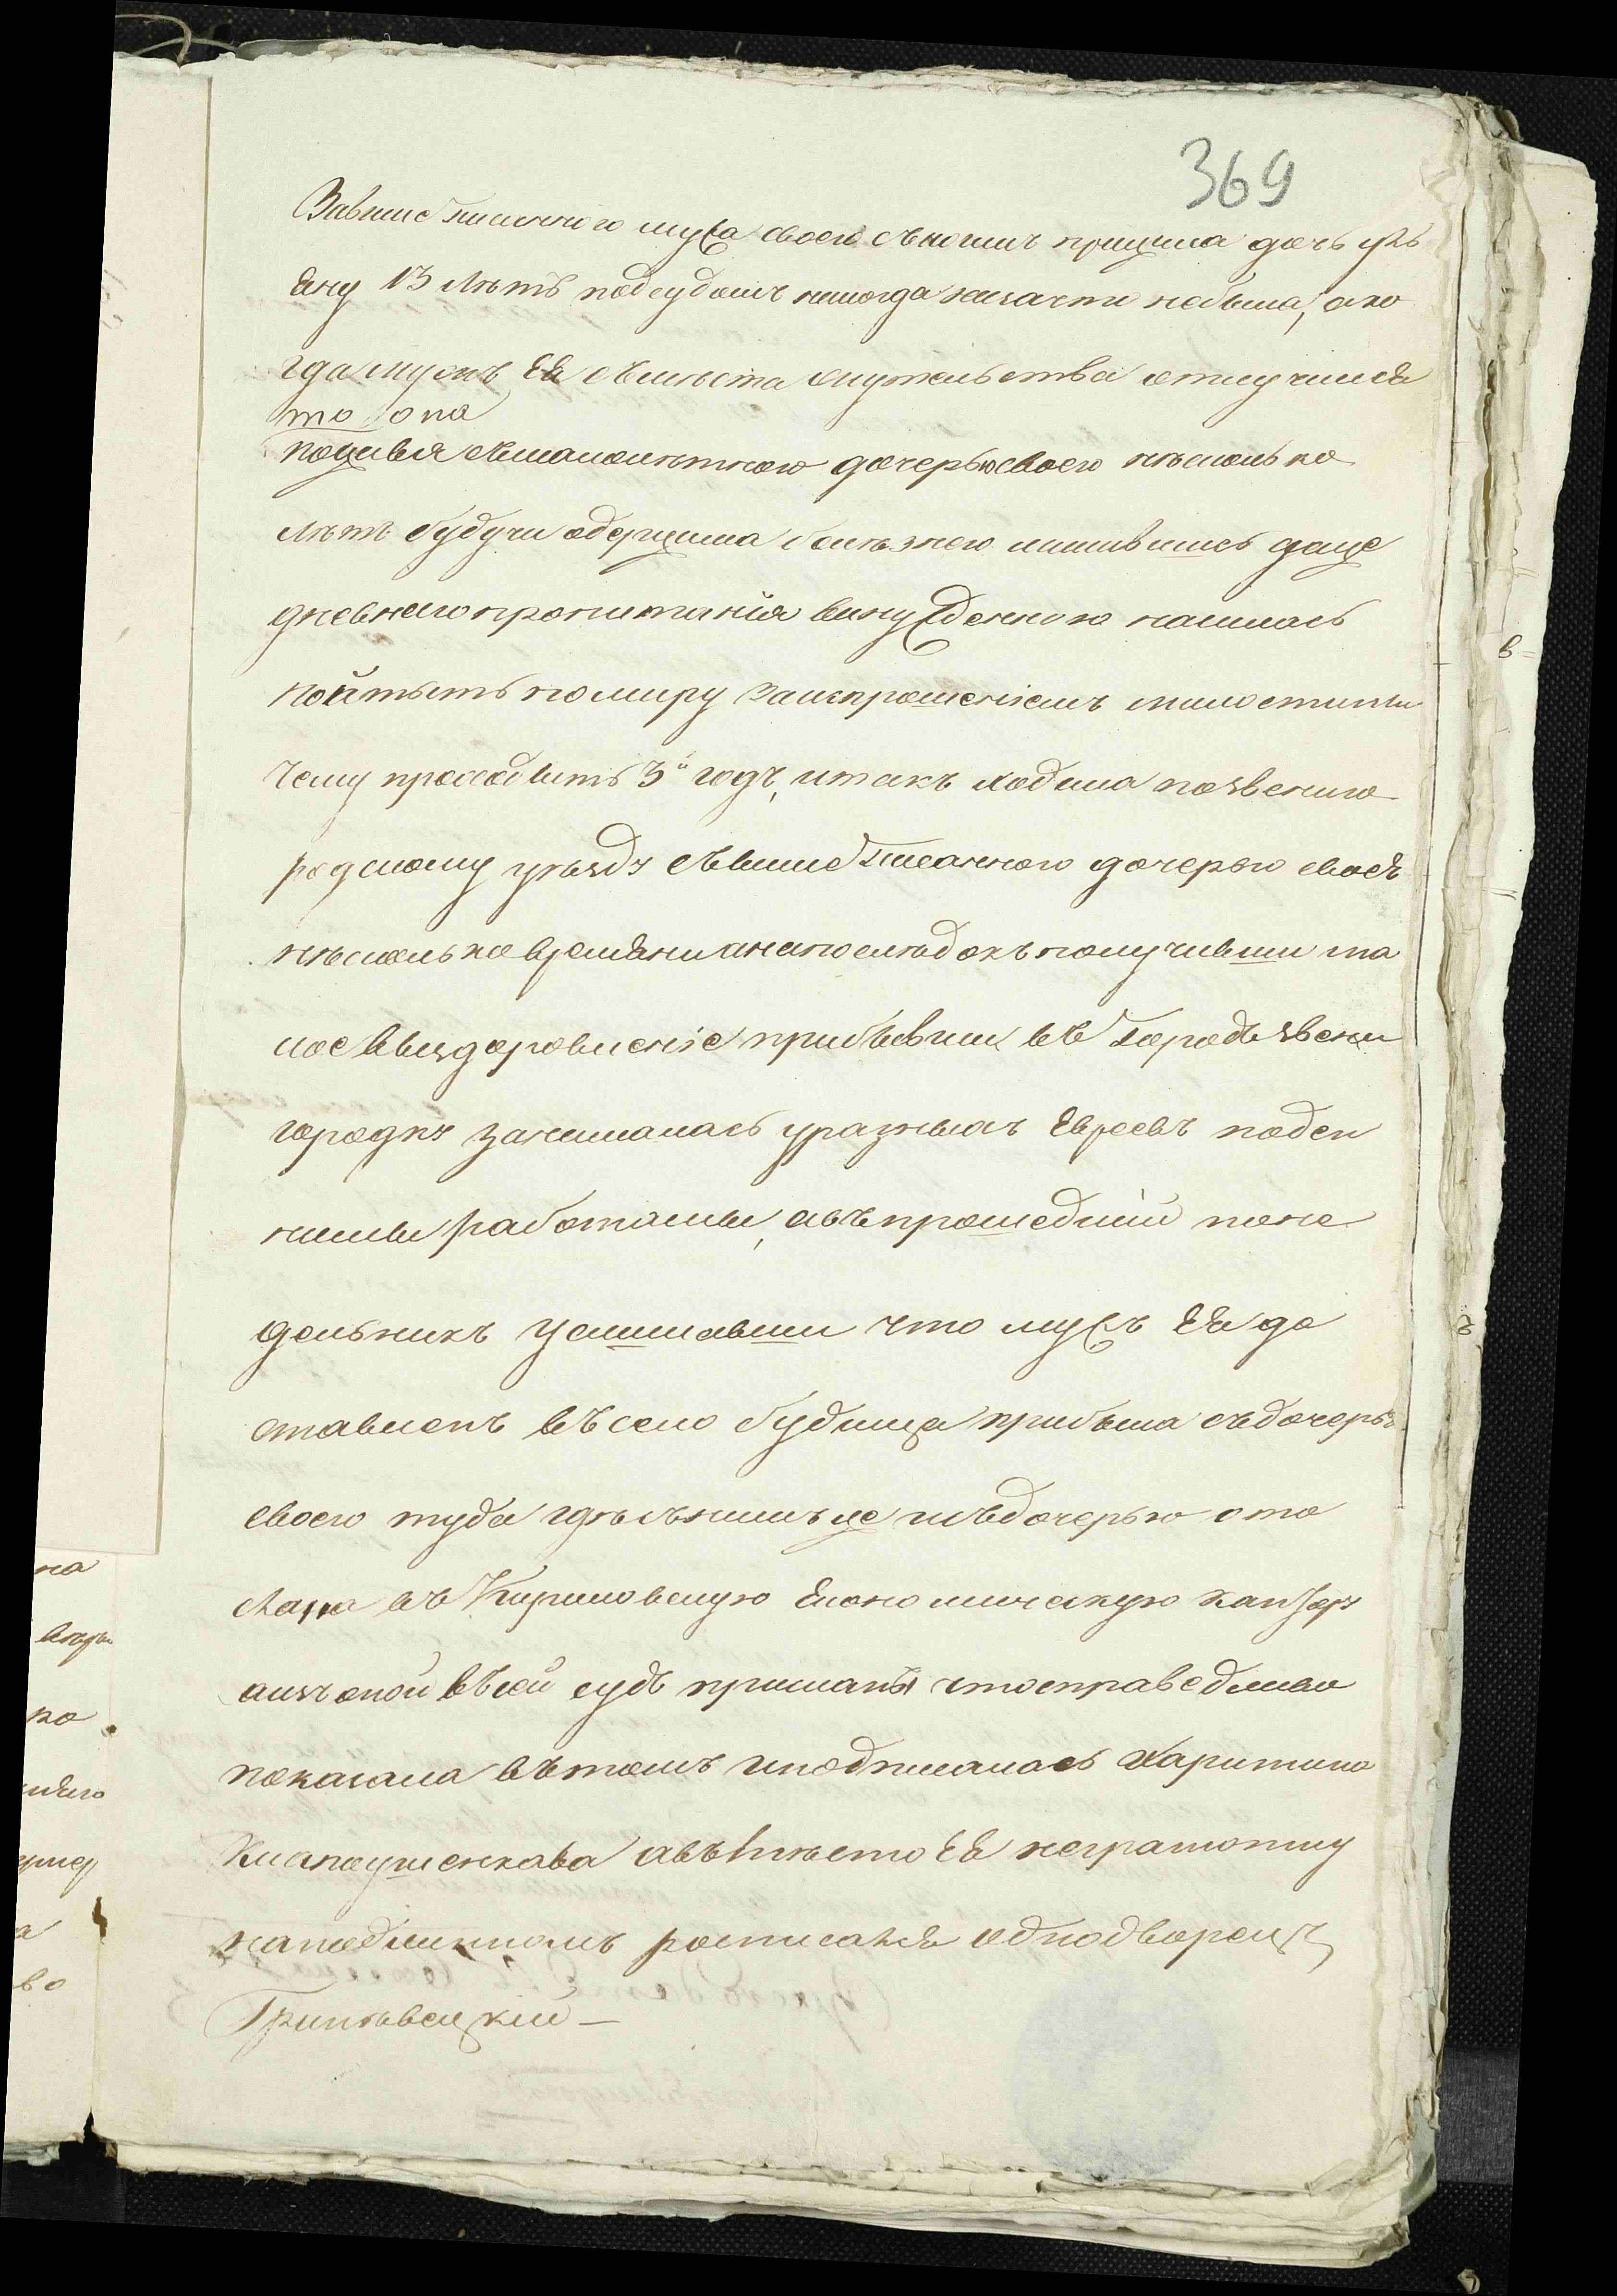 369
Завише писанного мужа своего съкоимъ прижила дочь уль
яну 13 лѣтъ подсудомъ никогда низачто небыла, ако
гда мужъ Ея съмѣста жительства отлучился
то она
поживя съмалолѣтною дочерью своею нѣсколько
лѣтъ будучи одержима болѣзнею лишившись даже
дневнаго пропитания винужденною нашлась
пойтыть помиру заиспрошеніемъ милостини
чему проходить 3й годъ, итакъ ходила позвениго
родскому уѣзду съвише писанною дочерью своей
нѣсколько времяни анапослѣдокъ получивши ма
лое выздоровленіе прибывши въ городъ звени
городку занималась уразныхъ Евреевъ поден
ними работами, авъпрошедший поне
дельникъ услишавши что мужъ Ея до
ставленъ въсело будища прибыла съдочерью
своею туда гдѣ сънимъ же исъдочерью ото
слана въ Кириловскую Економическую кантору
аизъоной въсей судъ присланы чтосправедливо
показала вътомъ иподписалась Харитина
Клапоушенкова авъмѣсто Ея неграмотну
наподлинномъ росписался однодворецъ
Грипѣвецкий —
на
ко
во